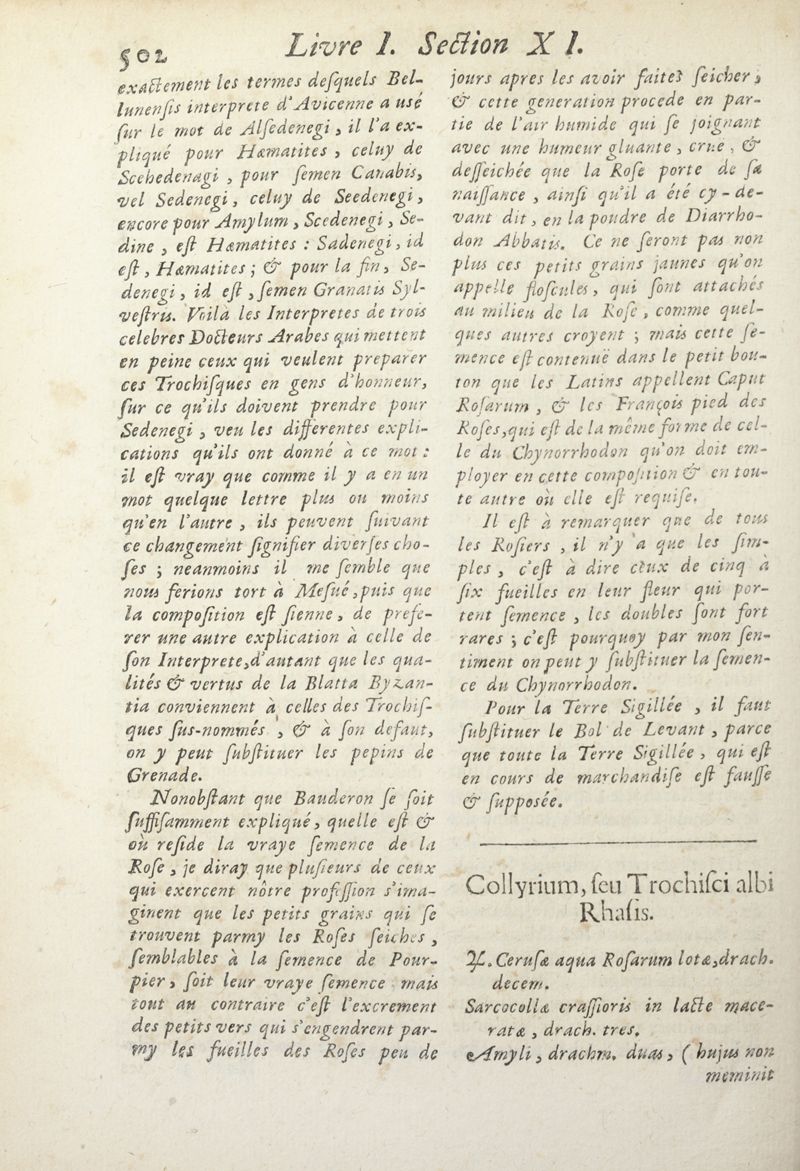 502
Livre I. Section XI.
exactement les termes desquels Bel-
lunensis interprete d'Avicenne a usé
sur le mot de Alsedenegi, il l'a ex-
pliqué pour Hæmatites, celuy de
Scehedenagi, pour semen Canabis,
vel Sedenegi, celuy de Seedenegi,
encore pour Amylum, Scedenegi, Se-
dine, est Hæmatites : Sadenegi, id
est, Hæmatites ; & pour la fin, Se-
denegi, id est, semen Granatis Syl-
vestris. Voilà les Interpretes de trois
celebres Docteurs Arabes qui mettent
en peine ceux qui veulent preparer
ces Trochisques en gens d'honneur,
sur ce qu'ils doivent prendre pour
Sedenegi, veu les differentes expli-
cations qu'ils ont donné à ce mot :
il est vray que comme il y a en un
mot quelque lettre plus ou moins
qu'en l'autre, ils peuvent suivant
ce changement signifier diverses cho-
ses ; neanmoins il me semble que
nous ferions tort à Mesué, puis que
la composition est sienne, de prefe-
rer une autre explication à celle de
son Interprete, d'autant que les qua-
lités & vertus de la Blatta Byzan-
tia conviennent à celles des Trochis-
ques sus-nommés, & à son defaut,
on y peut substituer les pepins de
Grenade.
Nonobstant que Bauderon se soit
suffisamment expliqué, quelle est &
où reside la vraye semence de la
Rose, je diray que plusieurs de ceux
qui exercent nôtre profession s'ima-
ginent que les petits grains qui se
trouvent parmy les Roses seiches,
semblables à la semence de Pour-
pier, soit leur vraye semence mais
tout au contraire c'est l'excrement
des petits vers qui s'engendrent par-
my les fueilles des Roses peu de
jours apres les avoir faites seicher,
& cette generation procede en par-
tie de l'air humide qui se joignant
avec une humeur gluante, crue, &
desseichée que la Rose porte de sa
naissance, ainsi qu'il a été cy-de-
vant dit, en la poudre de Diarrho-
don Abbatis. Ce ne seront pas non
plus ces petits grains jaunes qu'on
appelle floscules, qui sont attachés
au milieu de la Rose, comme quel-
ques autres croyent ; mais cette se-
mence est contenuë dans le petit bou-
ton que les Latins appellent Caput
Rosarum, & les François pied des
Roses, qui est de la même forme de cel-
le du Chynorrhodon qu'on doit em-
ployer en cette composition & en tou-
te autre où elle est requise.
Il est à remarquer que de tous
les Rosiers, il n'y a que les sim-
ples, c'est à dire ceux de cinq à
six fueilles en leur fleur qui por-
tent semence, les doubles sont fort
rares ; c'est pourquoy par mon sen-
timent on peut y substituer la semen-
ce du Chynorrhodon.
Pour la Terre Sigillée, il faut
substituer le Bol de Levant, parce
que toute la Terre Sigillée, qui est
en cours de marchandise est fausse
& supposée.
Collyrium, seu Trochisci albi
Rhasis.
℞. Cerusæ aqua Rosarum lotæ, drach.
decem.
Sarcocollæ crassioris in lacte mace-
ratæ, drach. tres.
Amyli, drachm. duas, ( hujus non
meminit